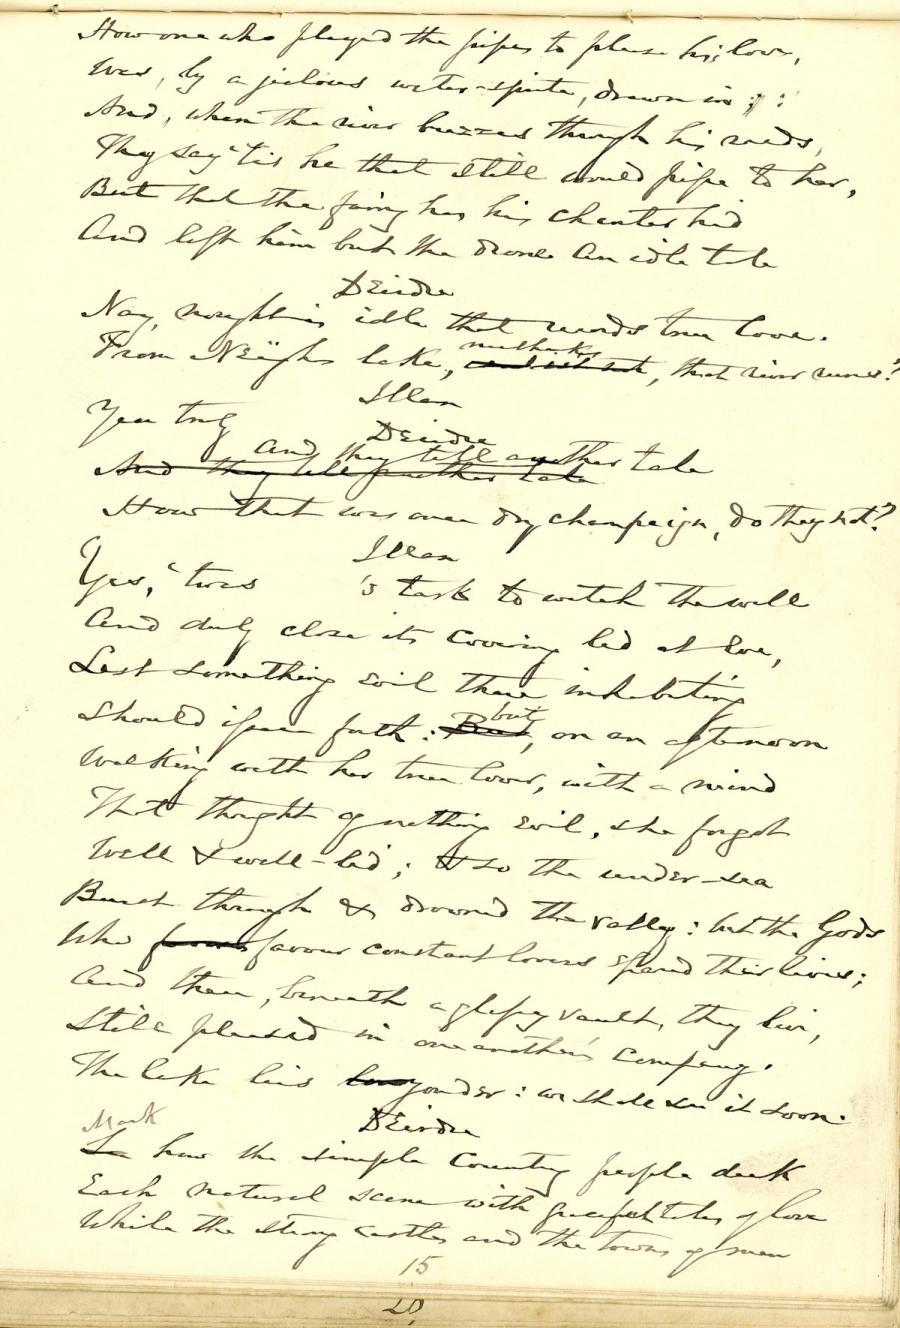 How one who played the pipes to please his love,
Was, by a jealous water-sprite, drawn in :
And, when the river buzzes through his reeds,
They say 'tis he that still would pipe to her,
But that the fairy has his chanter hid
And left him but the drone An idle tale
Deirdre
Nay, nought is idle that records true love.
From Neägh's lake, methinks, that river runs?
Illan
Yea truly
Deirdre
And they tell another tale
And they tell another tale
How that was once dry champaign, do they not?
Illan
Yes, 'twas 's task to watch the well
And duly close its covering lid at eve,
Lest something evil there inhabiting
Should issue forth : But but, on an afternoon
Walking with her true lover, with a mind
That thought of nothing evil, she forgot
Well & well-lid ; & so the under-sea
Burst through & drowned the valley : but the Gods
Who favour constant lovers spared their lives ;
And there, beneath a glassy vault, they live,
Still pleased in one another's company.
The lake lies yonder : we shall see it soon.
Deirdre
Mark
Lo how the simple country people deck
Each natural scene with graceful tales of love
While the strong castles and the towns of men
15
20,